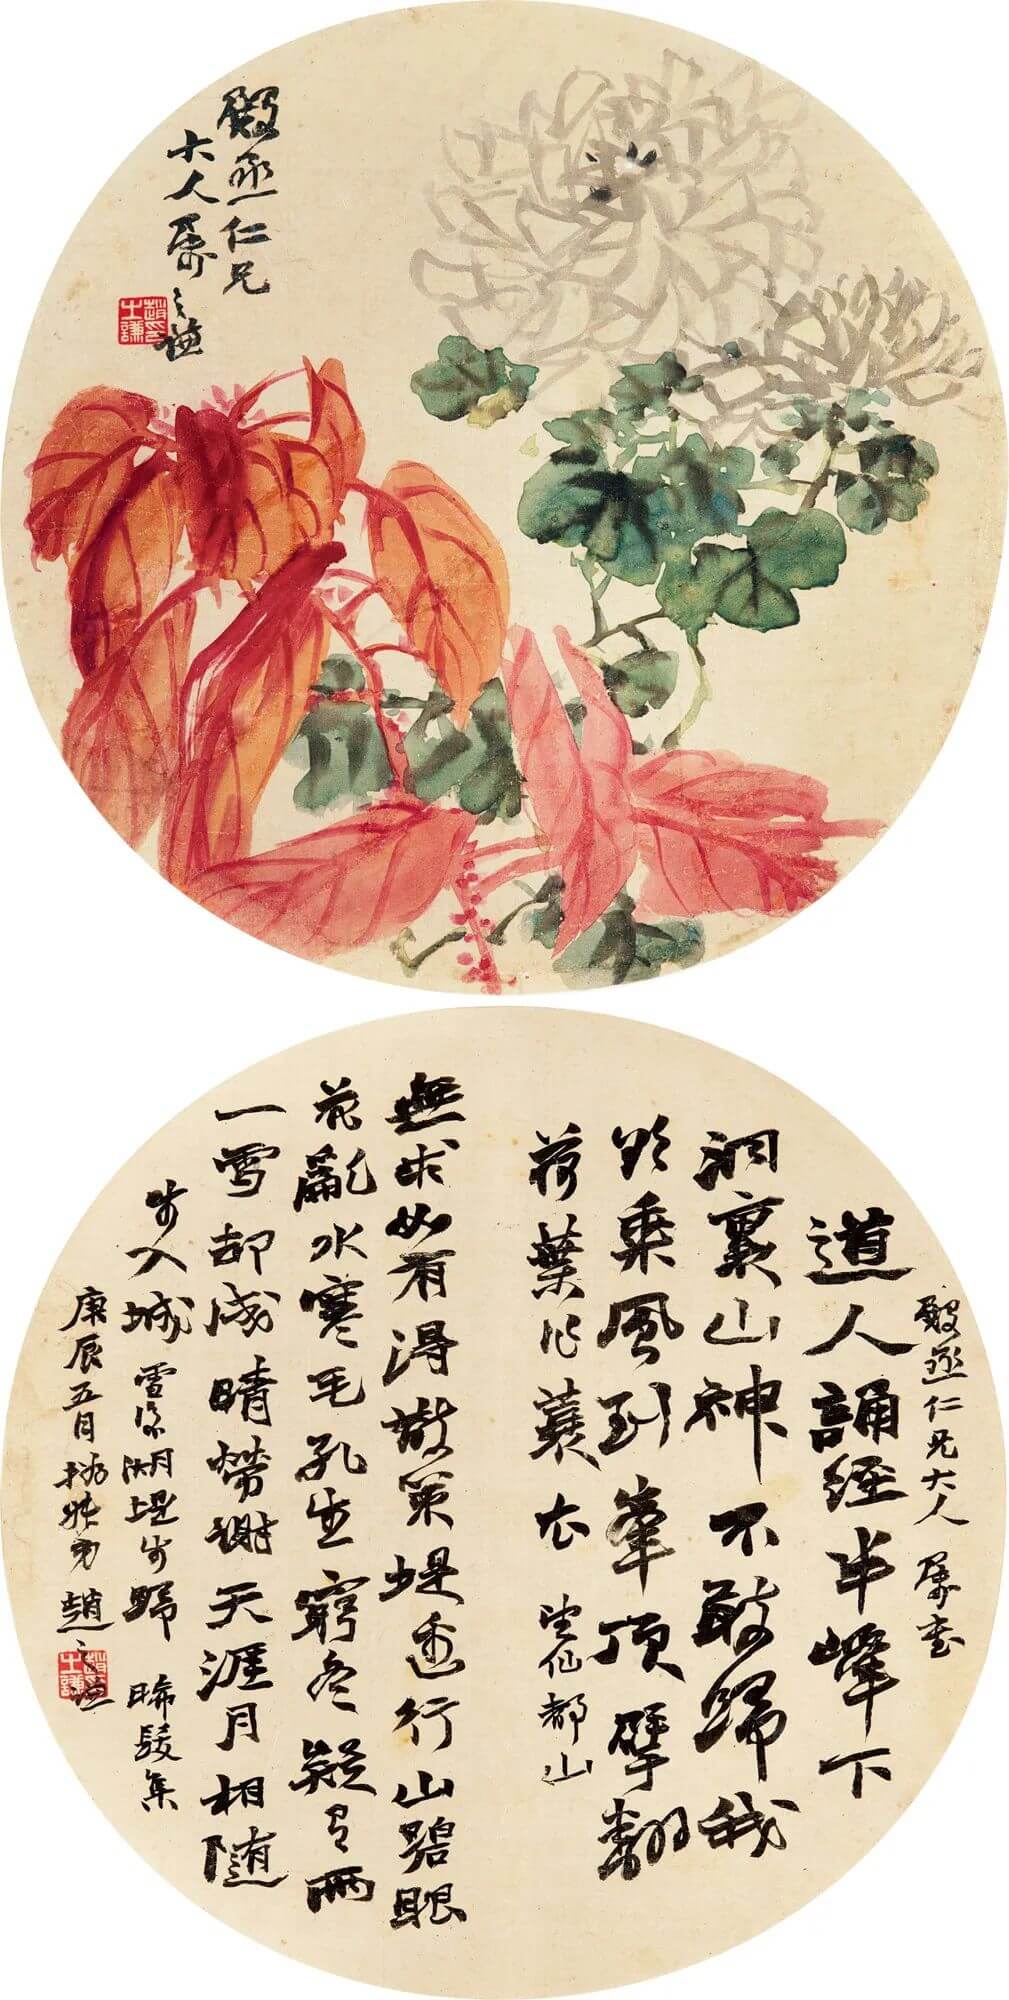 殿丞仁兄
大人屬 之謙
趙印之謙
殿丞仁兄大人 屬書
道人誦經半峰下
洞裏山神不敢歸我
欲乘風到峯頂擘翻
荷葉作蓑衣 望仙都山
無求如有得散策堤邊行山碧眼
花亂水寒毛孔生窮冬疑有兩
一雪却成晴勞謝天涯月相隨
步入城 雪後湖堤步歸 晞髮集
庚辰五月撝叔弟趙之謙
趙印之謙